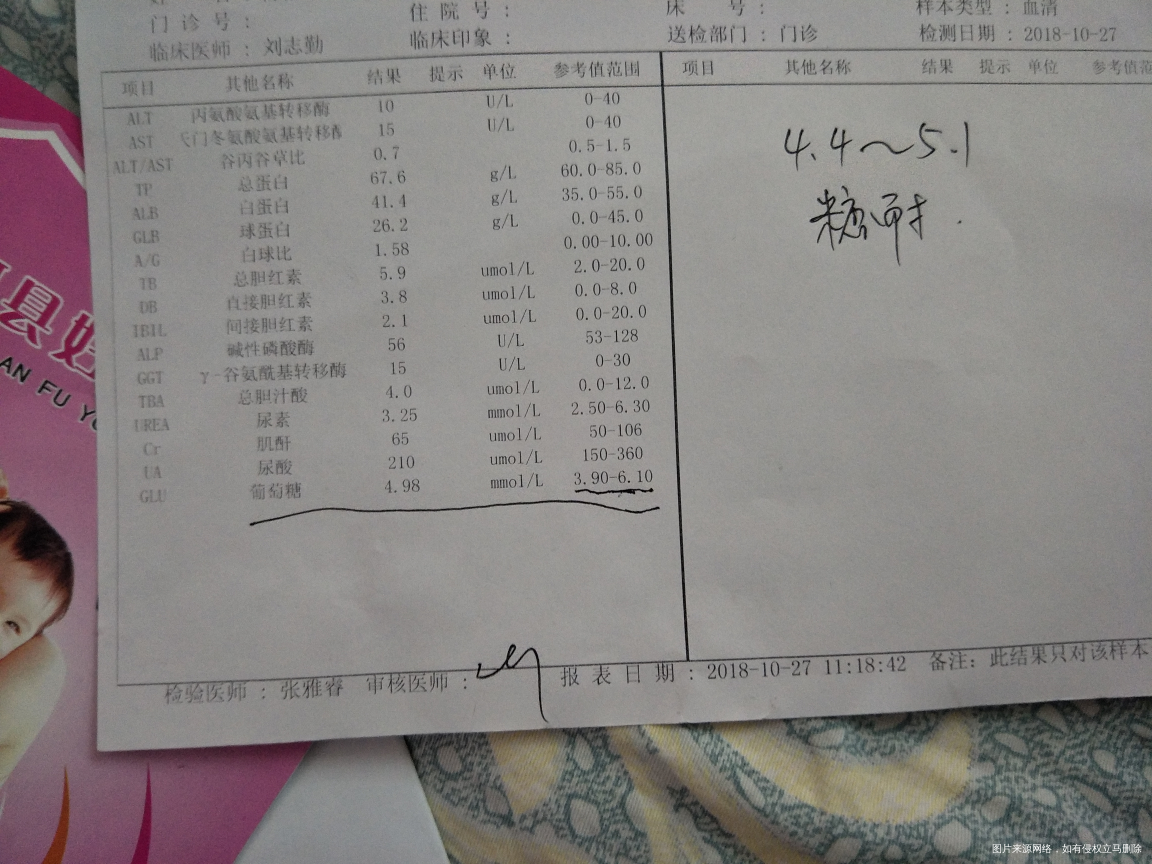 门 诊 号 ：
住 院 号 ：
床 号 ：
样本类型 ： 血清
临床医师 ： 刘志勤
临床印象 ：
送检部门 ： 门诊
检测日期 ： 2018-10-27
项目 其他名称 结果 提示 单位 参考值范围
项目 其他名称 结果 提示 单位 参考值范
ALT 丙氨酸氨基转移酶 10 U/L 0-40
AST 门冬氨酸氨基转移 15 U/L 0-40
ALT/AST 谷丙谷草比 0.7 0.5-1.5
TP 总蛋白 67.6 g/L 60.0-85.0
ALB 白蛋白 41.4 g/L 35.0-55.0
GLB 球蛋白 26.2 g/L 0.0-45.0
A/G 白球比 1.58 0.00-10.00
TB 总胆红素 5.9 umol/L 2.0-20.0
DB 直接胆红素 3.8 umol/L 0.0-8.0
IBIL 间接胆红素 2.1 umol/L 0.0-20.0
ALP 碱性磷酸酶 56 U/L 53-128
GGT γ-谷氨酰基转移酶 15 U/L 0-30
TBA 总胆汁酸 4.0 umol/L 0.0-12.0
UREA 尿素 3.25 mmol/L 2.50-6.30
Cr 肌酐 65 umol/L 50-106
UA 尿酸 210 umol/L 150-360
GLU 葡萄糖 4.98 mmol/L 3.90-6.10
4.4～5.1
糖耐.
检验医师 ： 张雅睿 审核医师 ：
报 表 日 期 ： 2018-10-27 11:18:42 备注： 此结果只对该样本
县妇
AN FU Y
图片来源网络，如有侵权立马删除